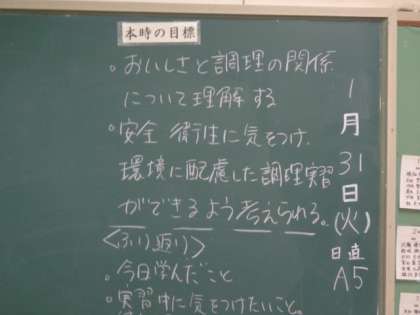 本時の目標
。おいしさと調理の関係
について理解する
。安全 衛生に気をつけ、
環境に配慮した調理実習
ができるよう考えられる。
<ふり返り>
。今日学んだこと
。実習中に気をつけたいこと。
1月31日(火)
日直
A5